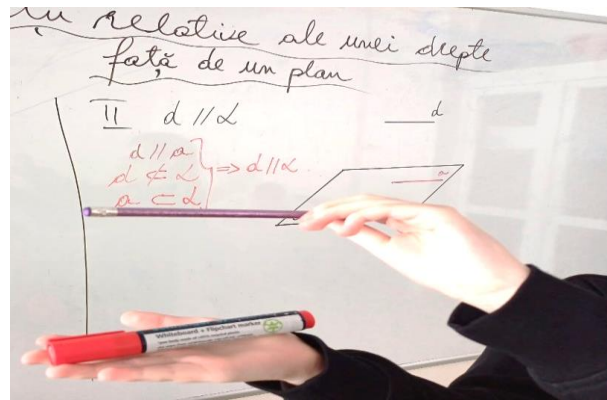 relative ale unei drepte
față de un plan
II d // α
d
d // a
d ⊄ α
a ⊂ α
⇒ d // α
a
Whiteboard + Flipchart marker